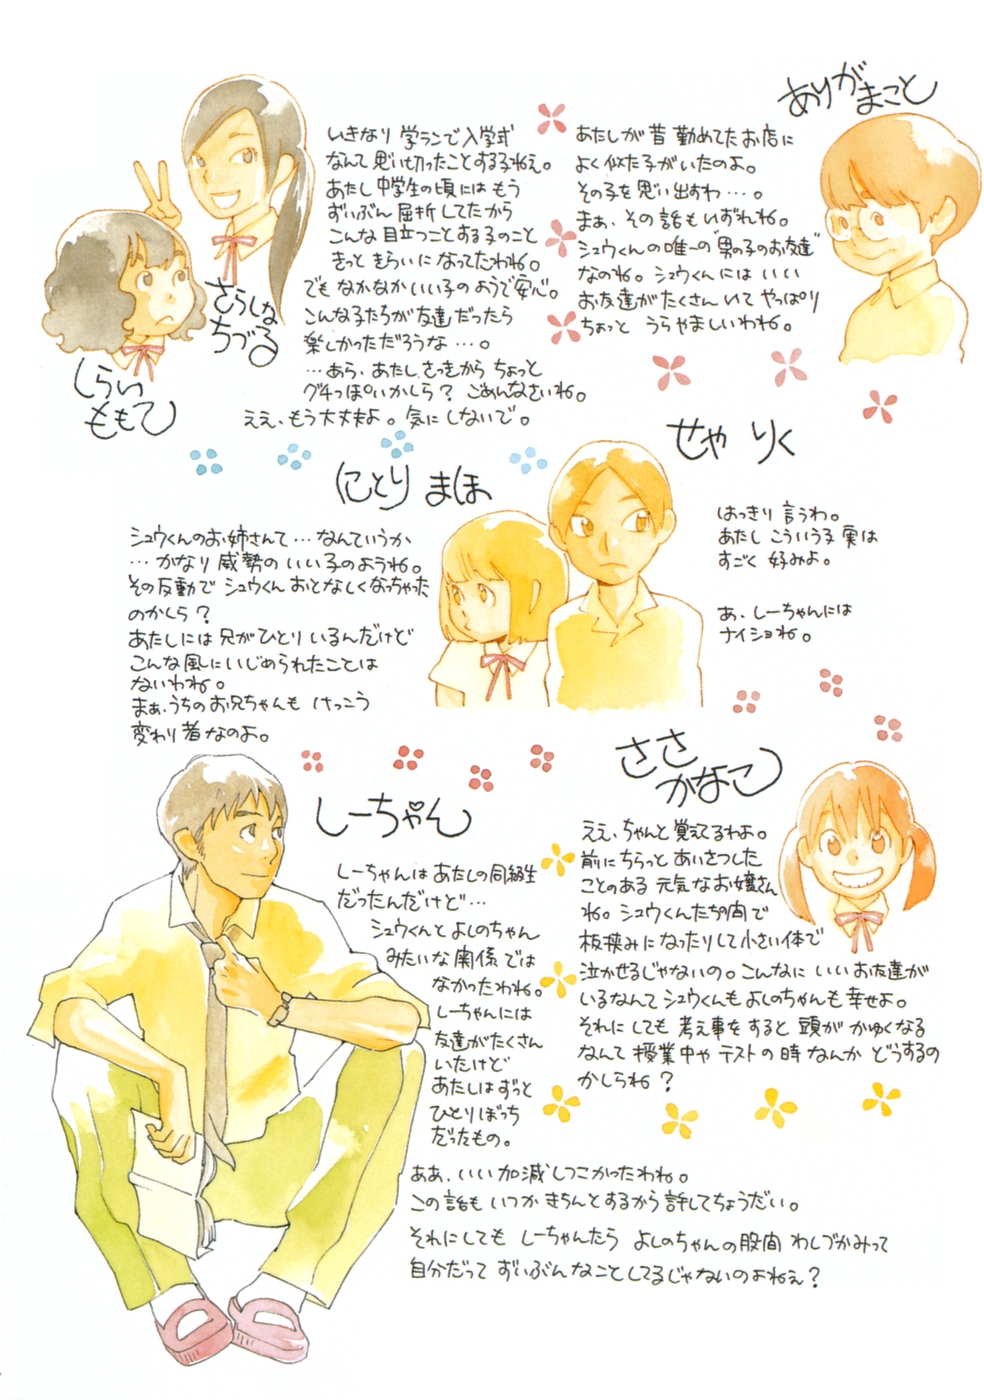 さらしな
ちづる
しらい
ももて
いきなり 学ランで入学式
なんて 思い切ったことする子ねぇ。
あたし 中学生の頃には もう
ずいぶん 屈折してたから
こんな 目立つことする子のこと
きっと きらいに なってたわね。
でも なかなか いい子のようで安心。
こんな子たちが 友達 だったら
楽しかっただろうな …。
…あら、あたし、さっきから ちょっと
グチっぽいかしら? ごめんなさいね。
ええ、もう大丈夫よ。気に しないで。
ありが
まこと
あたしが昔 勤めてたお店に
よく似た子がいたのよ。
その子を思い出すわ …。
まぁ、その話もいずれね。
シュウくんの唯一の"男の子のお友達"
なのね。シュウくんには いい
お友達が たくさん いて やっぱり
ちょっと うらやましいわね。
にとり まほ
シュウくんのお姉さんて … なんていうか
… かなり 威勢の いい子のようね。
その反動で シュウくん おとなしくなっちゃった
のかしら ?
あたしには 兄が ひとり いるんだけど
こんな風に いじめられたことは
ないわね。
まぁ、うちの お兄ちゃんも けっこう
変わり者なのよ。
せや りく
はっきり 言うわ。
あたし こういう子 実は
すごく 好みよ。
あ、しーちゃんには
ナイショね。
しーちゃん
しーちゃんは あたしの同級生
だったんだけど…
シュウくんと よしのちゃん
みたいな 関係では
なかったわね。
しーちゃんには
友達が たくさん
いたけど
あたしは ずっと
ひとりぼっち
だったもの。
ああ、いい加減しつこかったわね。
この話も いつか きちんとするから 許してちょうだい。
それにしても しーちゃんたら よしのちゃんの股間 わしづかみって
自分だって ずいぶんなことしてるじゃないのよねぇ?
ささ
かなこ
ええ、ちゃんと 覚えてるわよ。
前に ちらっと あいさつした
ことのある 元気なお嬢さん
ね。シュウくんたちの間で
板挟みに なったりして 小さい体で
泣かせるじゃないの。こんなに いいお友達が
いるなんて シュウくんも よしのちゃんも 幸せよ。
それにしても 考え事をすると 頭が かゆくなる
なんて 授業中や テストの時 なんか どうするの
かしらね ?